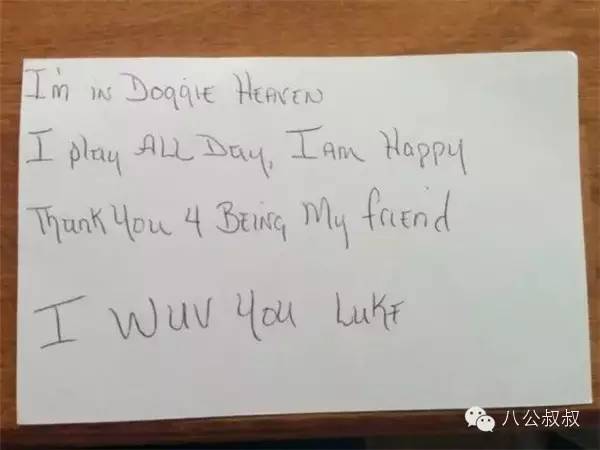 I'm in Doggie Heaven
I play All Day, I Am Happy
Thank You 4 Being My friend
I Wuv You Luke
八公叔叔